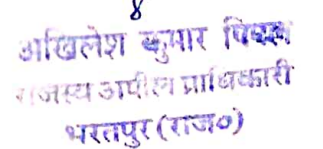 8
अखिलेश कुमार पिप्पल
राजस्व अपील प्राधिकारी
भरतपुर (राज०)